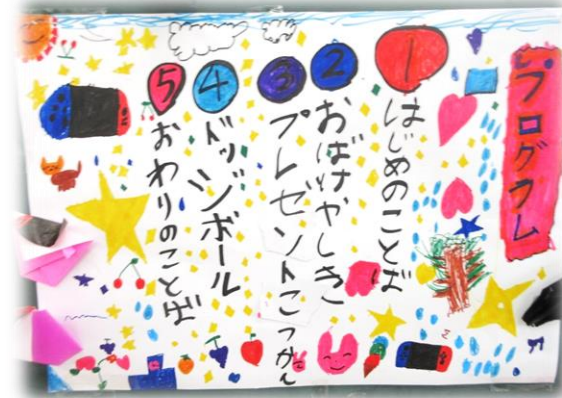 プログラム
1 はじめのことば
2 おばけやしき
3 プレゼントこうかん
4 ドッジボール
5 おわりのことば